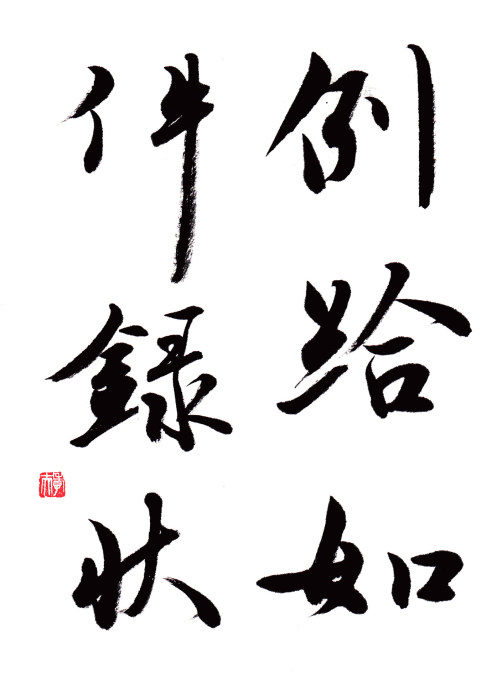 例跲如
件録状